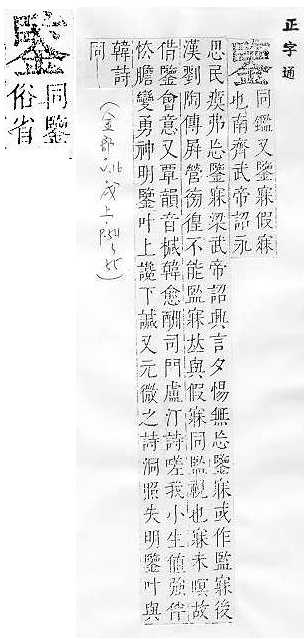 正字通
鑒
同鑑又鑒寐假寐
也南齊武帝詔永
思民瘼弗忘鑒寐梁武帝詔興言夕惕無忘鑒寐或作監寐後
漢劉陶傳屏營徬徨不能監寐𠀤與假寐同監視也寐未瞑故
借鑒會意又覃韻音椷韓愈酬司門盧汀詩嗟我小生值強伴
怯膽變勇神明鑒叶上讒下諴又元微之詩洞照失明鑒叶與
韓詩
同
(金部.v.16 戌上.P.54~55)
鍳
同鑒
俗省